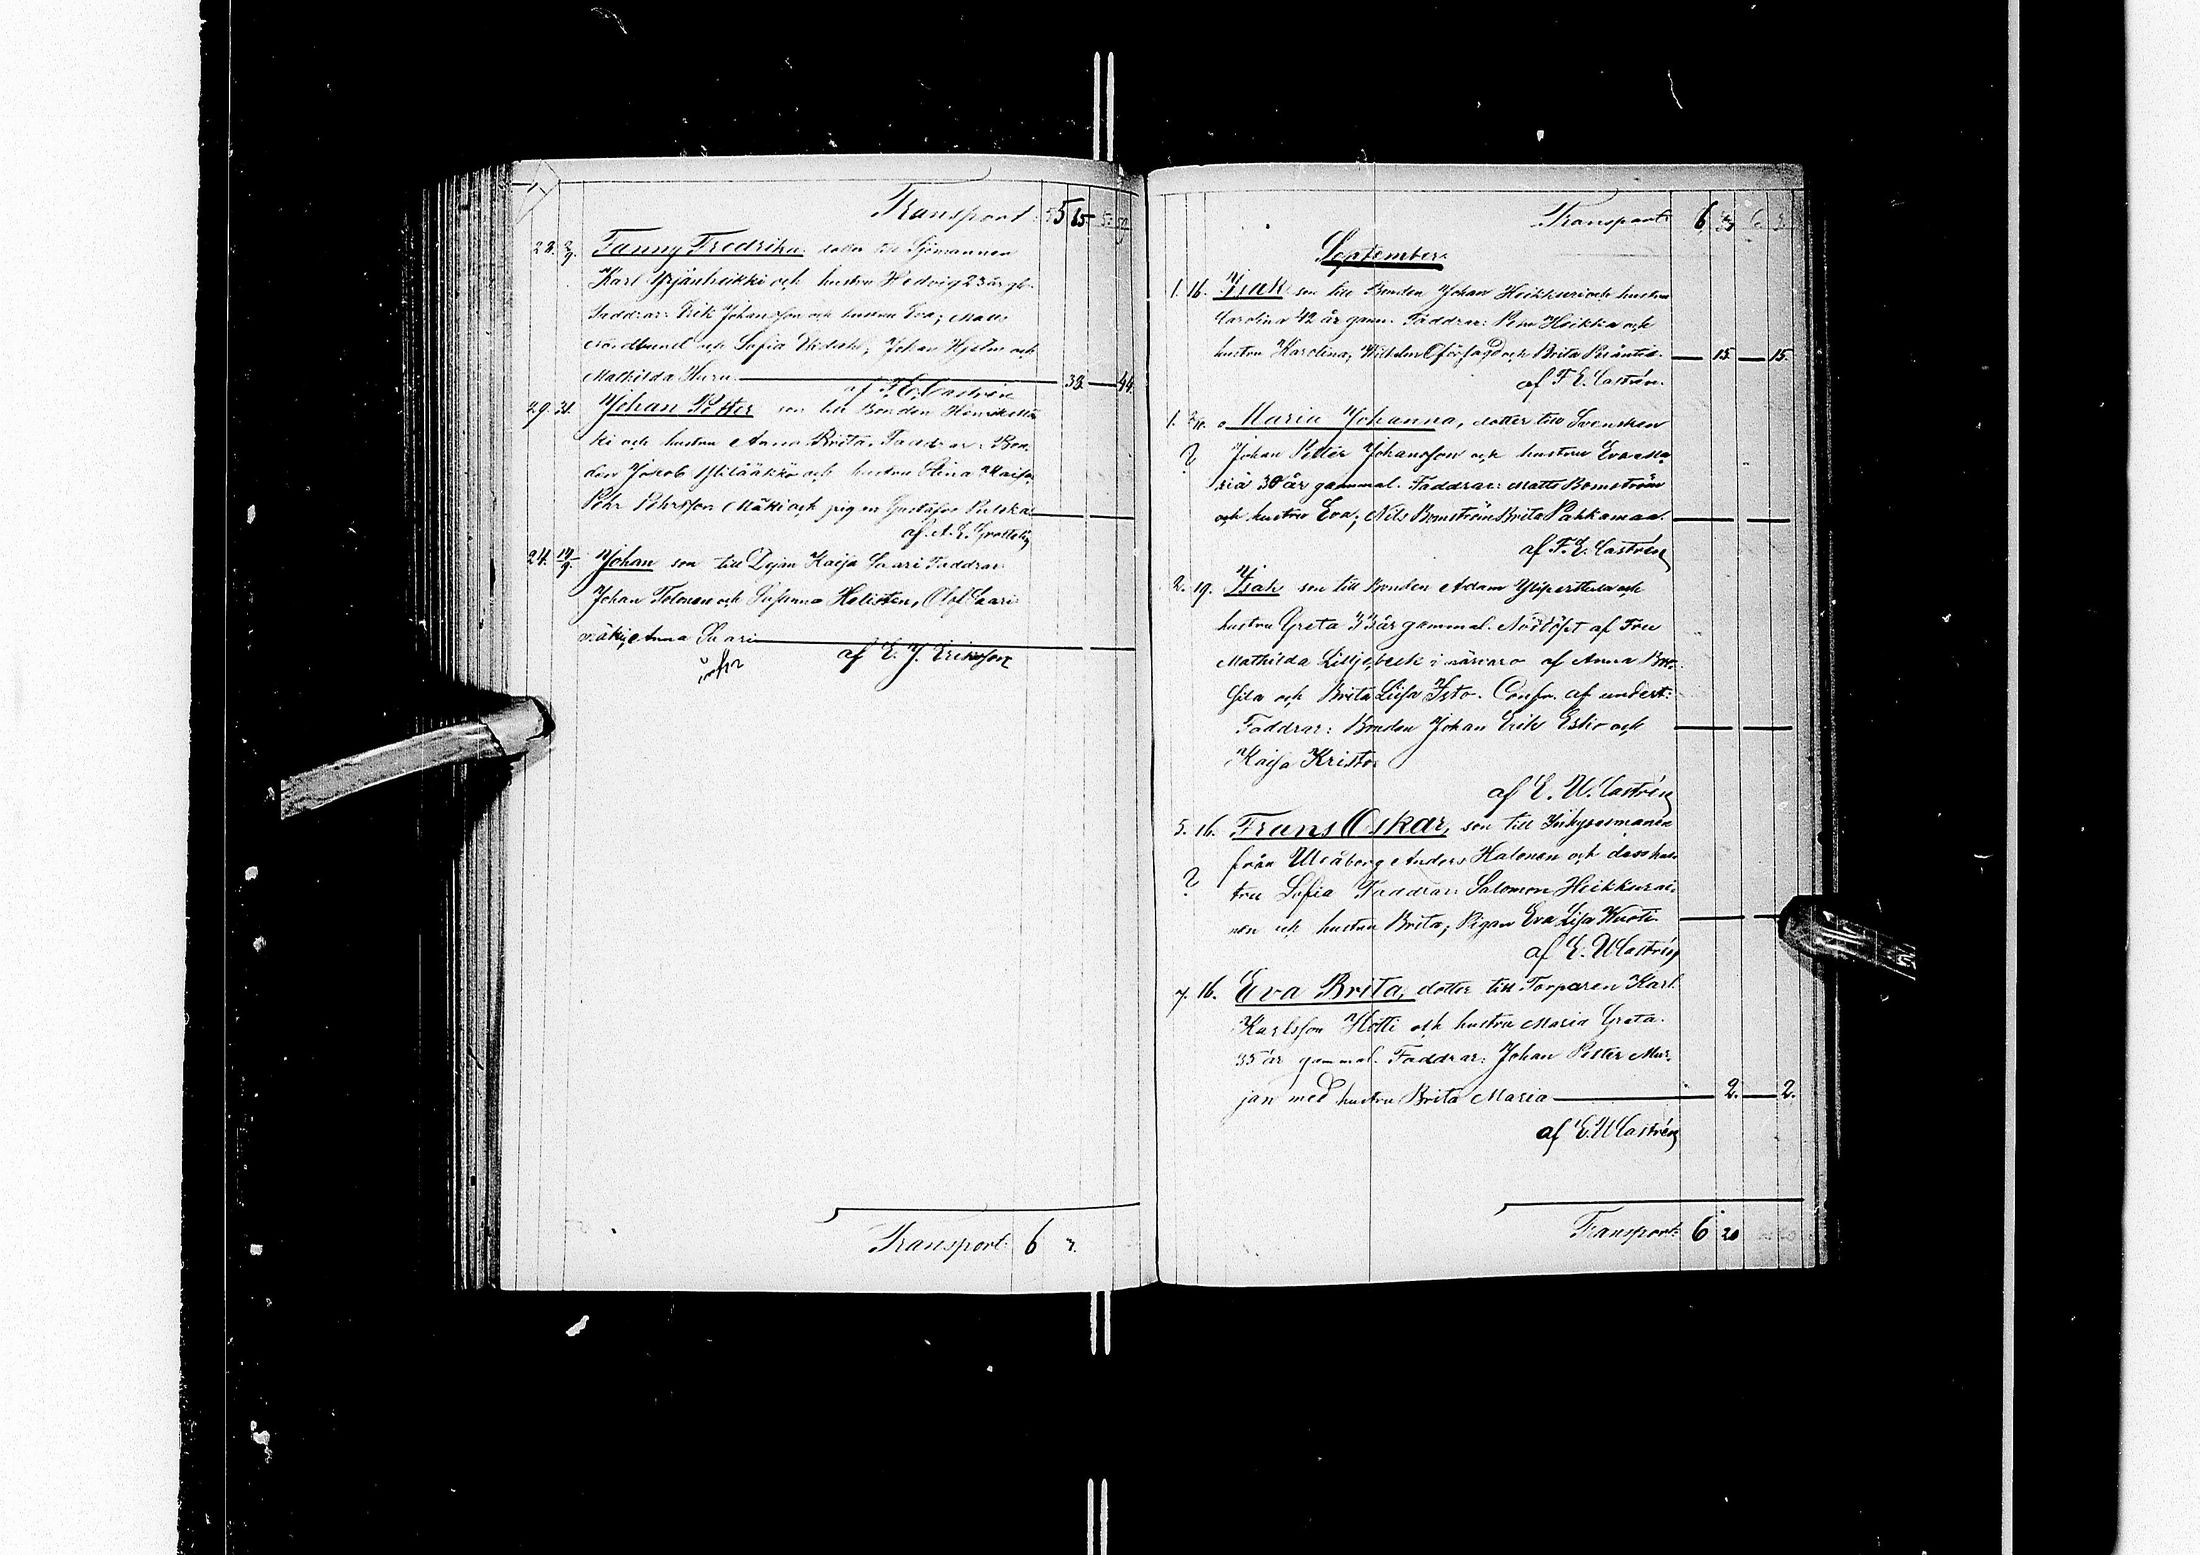 Transport 5 65
28. 2/9. Fanny Fredrika dotter till Sjömannen
Karl Yrjänheikki och hustru Hedvig 23 år gl.
Faddrar: Erik Johansson och hustru Eva; Matts
och Sofia; Johan Hjelm och
Mathilda Huru 33 44
af F. E. Castrén
29. 31. Johan Petter son till Bonden Henrik
ki och hustru Anna Brita. Faddrar: Bon-
den Jacob Ylitääkkö och hustru Stina Kaisa
Pehr Pehrsson Mäki och pigan Gustafva
af A. E. Grotteli
24. 14/9. Johan son till Dejan Kaisa Saari Faddrar
Johan Tolonen och Susanna Halisten, Olof Saari
Anna Saari
af E. J. Eriksson
Transport: 6
Transport: 6
September.
1. 16. Isak son till Bonden Johan Heikkuri och hustru
Carolina 42 år gam. Faddrar: Pehr Heikka och
hustru Karolina; Wilhelm och Brita 15. 15.
af F. E. Castrén.
1. Maria Johanna, dotter till Svensken
? Johan Petter Johansson och hustru Eva Ma-
ria 30 år gammal. Faddrar: Matts Bomström
och hustru Eva; Nils Bomström Brita Pakkamaa.
af F. E. Castrén
2. 19. Isak son till Bonden Adam och
hustru Greta 33 år gammal. Nöddöpt af Fru
Mathilda Liljebeck i närvaro af Anna
och Brita Liisa Isto. Conf. af undert:
Faddrar: Bonden Johan Erik Esko och
Kaisa Kristo.
af E. W. Castrén
5. 16. Frans Oskar, son till
från Uleåborg Anders Halonen och dess hus-
? tru Sofia Faddrar: Salomon Heikkurai-
nen och hustru Brita; Pigan Eva Lisa
af E. W Castrén
7. 16. Eva Brita, dotter till Torparen Karl
Karlsson Hotti och hustru Maria Greta.
35 år gammal. Faddrar: Johan Petter Mur-
jan med hustru Brita Maria 2. 2.
af E. W Castrén
Transport: 6 20